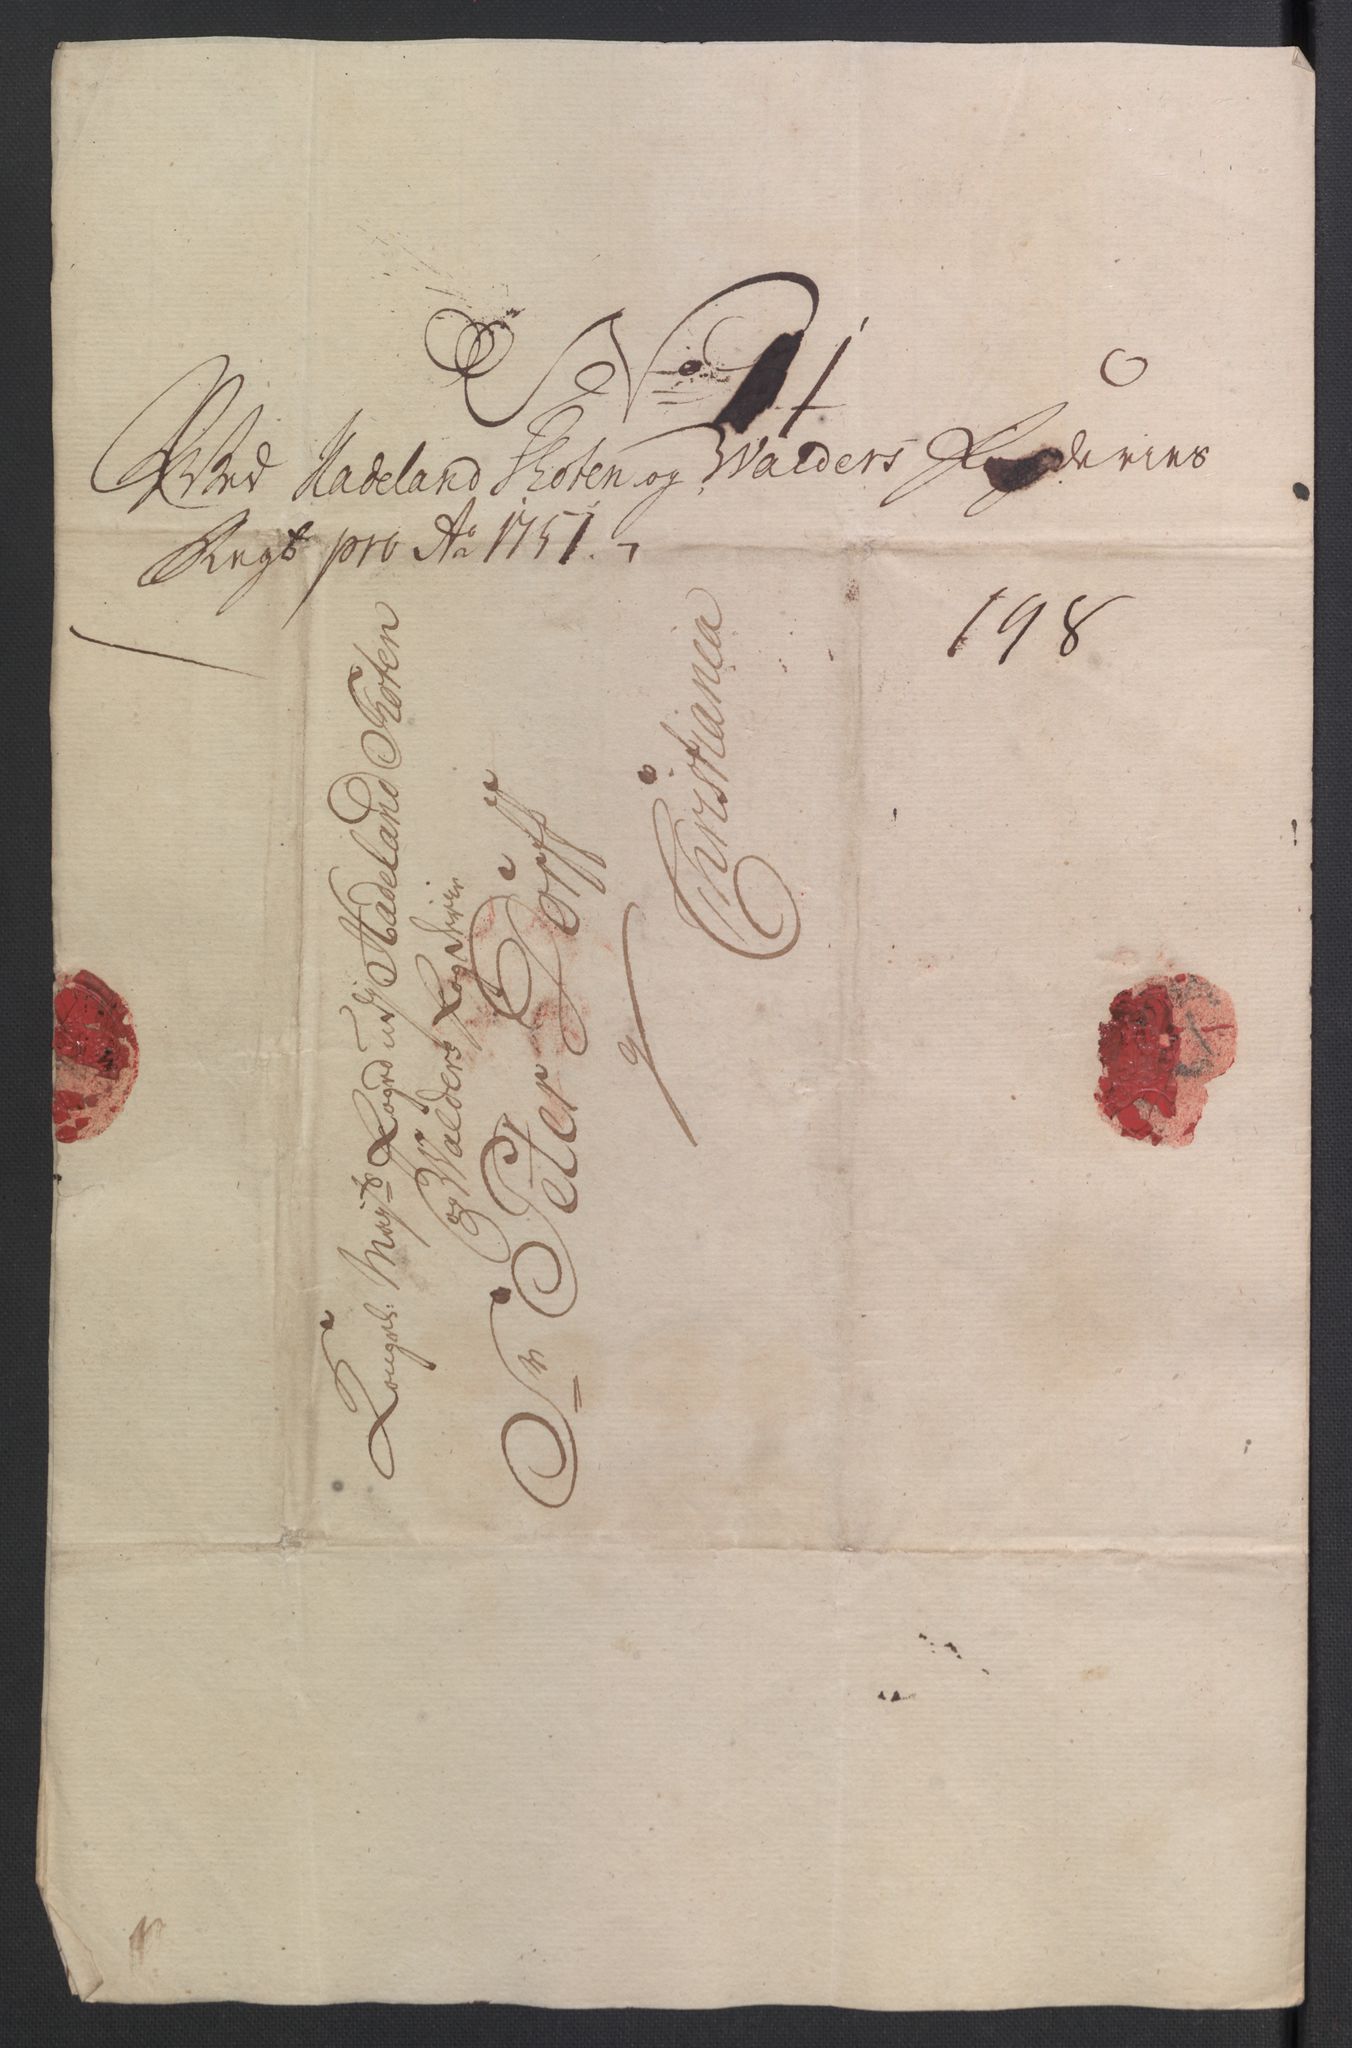 No 1
Ved Hadeland Thoten og Walders Fogderies
Regb pro Ao 1751.
198
Kongel: Mayts Foged udj Hadeland Thoten
og Walders Fogderier
Sr Peter Dorff
Christiania